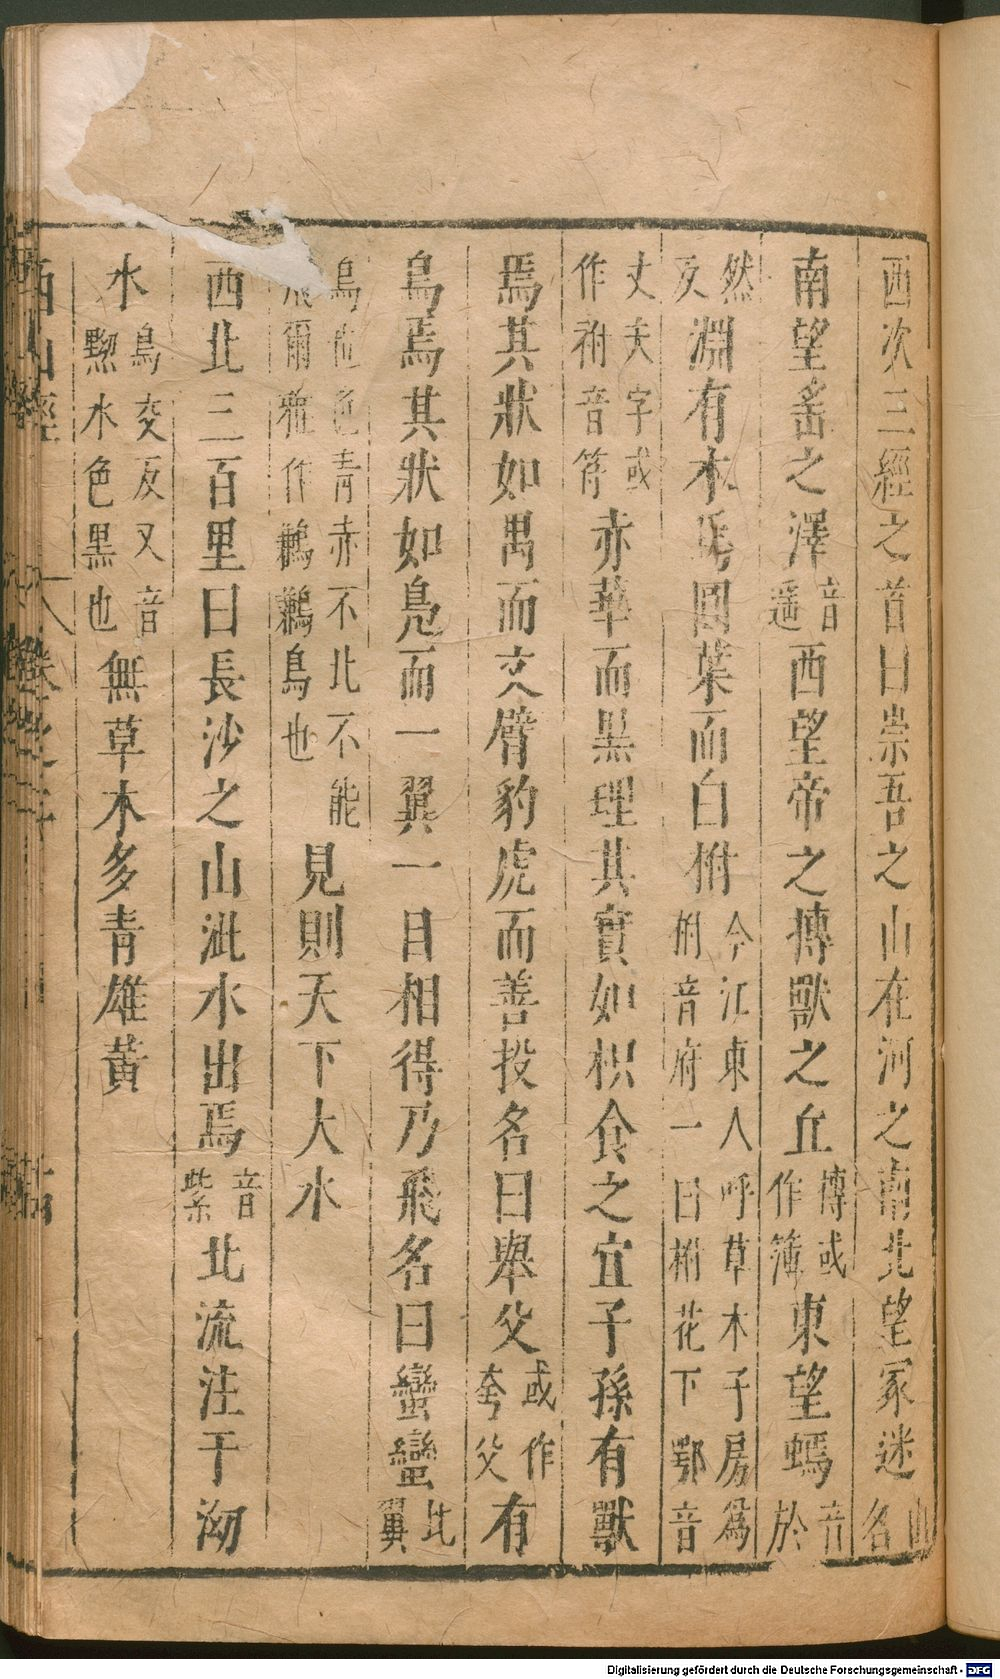 西次三經之首曰崇吾之山在河之南北望冢遂山名
南望䍃之澤音遥西望帝之摶獸之丘摶或作簿東望䗡音於
然反淵有木焉圓葉而白柎今江東人呼草木子房爲柎音府一曰柎花下鄂音
丈夫字或作柎音符赤華而黑理其實如枳食之宜子孫有獸
焉其狀如禺而文臂豹虎而善投名曰舉父或作夸父有
鳥焉其狀如鳧而一翼一目相得乃飛名曰蠻蠻比翼
鳥也色青赤不比不能飛爾雅作鶼鶼鳥也見則天下大水
西北三百里曰長沙之山泚水出焉音紫北流注于泑
水烏交反又音黝水色黑也無草木多青雄黃
西山經 卷之二
Digitalisierung gefördert durch die Deutsche Forschungsgemeinschaft - DFG